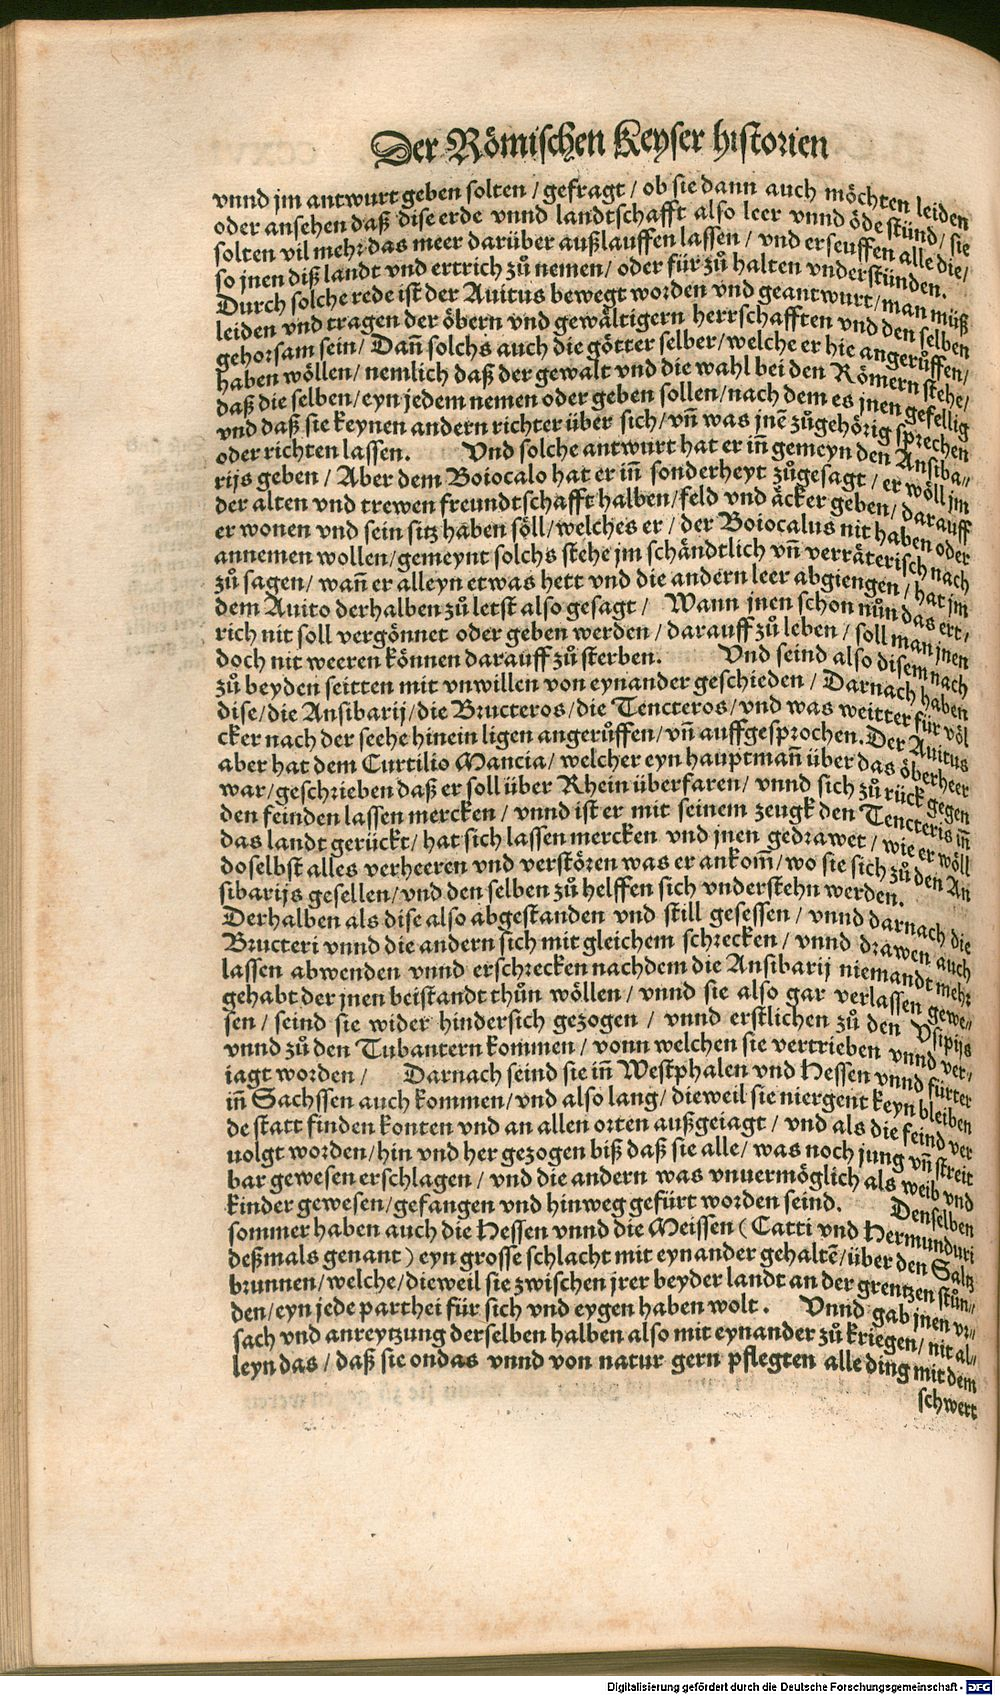 Der Römischen Keyser historien
vnnd jm antwurt geben solten / gefragt / ob sie dann auch möchten leiden
oder ansehen daß dise erde vnnd landtschafft also leer vnnd öde stünd / sie
solten vil mehr das meer darüber außlauffen lassen / vnd erseuffen alle die /
so jnen diß landt vnd ertrich zů nemen / oder für zů halten vnderstünden.
Durch solche rede ist der Auitus bewegt worden vnd geantwurt / man müß
leiden vnd tragen der öbern vnd gewältigern herrschafften vnd den selben
gehorsam sein / Dañ solchs auch die götter selber / welche er hie angerůffen /
haben wöllen / nemlich daß der gewalt vnd die wahl bei den Römern stehe /
daß die selben / eyn jedem nemen oder geben sollen / nach dem es jnen gefellig
vnd daß sie keynen andern richter über sich / vñ was jnẽ zůgehörig sprechen
oder richten lassen. Vnd solche antwurt hat er iñ gemeyn den Ansiba⸗
rijs geben / Aber dem Boiocalo hat er iñ sonderheyt zůgesagt / er wöll jm
der alten vnd trewen freundtschafft halben / feld vnd äcker geben / darauff
er wonen vnd sein sitz haben söll / welches er / der Boiocalus nit haben oder
annemen wollen / gemeynt solchs stehe jm schändtlich vñ verräterisch nach
zů sagen / wañ er alleyn etwas hett vnd die andern leer abgiengen / hat jm
dem Auito derhalben zů letst also gesagt / Wann jnen schon nůn das ert /
rich nit soll vergönnet oder geben werden / darauff zů leben / soll man jnen
doch nit weeren können darauff zů sterben. Vnd seind also disem nach
zů beyden seitten mit vnwillen von eynander geschieden / Darnach haben
dise / die Ansibarij / die Bructeros / die Tencteros / vnd was weitter für völ
cker nach der seehe hinein ligen angerůffen / vñ auffgesprochen. Der Auitus
aber hat dem Curtilio Mancia / welcher eyn hauptmañ über das öberheer
war / geschrieben daß er soll über Rhein überfaren / vnnd sich zů rück gegen
den feinden lassen mercken / vnnd ist er mit seinem zeugk den Tencteris iñ
das landt gerückt / hat sich lassen mercken vnd jnen gedrawet / wie er wöll
doselbst alles verheeren vnd verstören was er ankom̃ / wo sie sich zů den An
sibarijs gesellen / vnd den selben zů helffen sich vnderstehn werden.
Derhalben als dise also abgestanden vnd still gesessen / vnnd darnach die
Bructeri vnnd die andern sich mit gleichem schrecken / vnnd drawen auch
lassen abwenden vnnd erschrecken nachdem die Ansibarij niemandt mehr
gehabt der jnen beistandt thůn wöllen / vnnd sie also gar verlassen gewe⸗
sen / seind sie wider hindersich gezogen / vnnd erstlichen zů den Vsipijs
vnnd zů den Tubantern kommen / vonn welchen sie vertrieben vnnd ver /
iagt worden / Darnach seind sie iñ Westphalen vnd Hessen vnnd fürter
iñ Sachssen auch kommen / vnd also lang / dieweil sie niergent keyn bleiben
de statt finden konten vnd an allen orten außgeiagt / vnd als die feind ver
uolgt worden / hin vnd her gezogen biß daß sie alle / was noch jung vñ streit
bar gewesen erschlagen / vnd die andern was vnuermöglich als weib vnd
kinder gewesen / gefangen vnd hinweg gefürt worden seind. Denselben
sommer haben auch die Hessen vnnd die Meissen ( Catti vnd Hermunduri
deßmals genant ) eyn grosse schlacht mit eynander gehaltẽ / über den Saltz
brunnen / welche / dieweil sie zwischen jrer beyder landt an der grentzen stůn⸗
den / eyn jede parthei für sich vnd eygen haben wolt. Vnnd gab jnen vr⸗
sach vnd anreytzung derselben halben also mit eynander zů kriegen / nit al⸗
leyn das / daß sie on das vnnd von natur gern pflegten alle ding mit dem
schwert
Digitalisierung gefördert durch die Deutsche Forschungsgemeinschaft - DFG